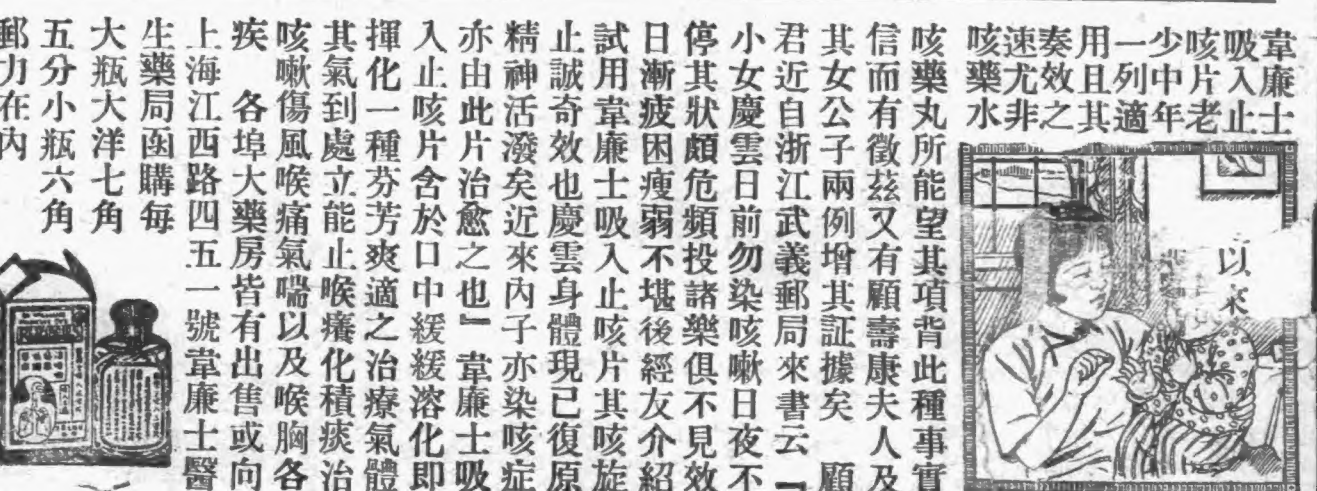 韋廉士
吸入止
咳片老
少中年
一列適
用且其
奏效之
速尤非
咳藥水
以來
咳藥丸所能望其項背此種事實
信而有徵茲又有顧壽康夫人及
其女公子兩例增其証據矣　顧
君近自浙江武義郵局來書云『
小女慶雲日前勿染咳嗽日夜不
停其狀頗危頻投諸樂俱不見效
日漸疲困瘦弱不堪後經友介紹
試用韋廉士吸入止咳片其咳旋
止誠奇效也慶雲身體現已復原
精神活潑矣近來內子亦染咳症
亦由此片治愈之也』韋廉士吸
入止咳片含於口中緩緩溶化即
揮化一種芬芳爽適之治療氣體
其氣到處立能止喉癢化積痰治
咳嗽傷風喉痛氣喘以及喉胸各
疾　各埠大藥房皆有出售或向
上海江西路四五一號韋廉士醫
生藥局函購每
大瓶大洋七角
五分小瓶六角
郵力在內